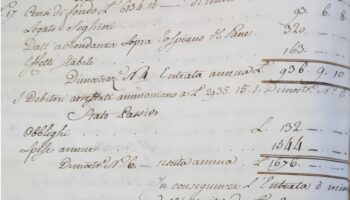 17 Censi di fondo L 6134.15 . - 93. 6. 8
Legato Seghieri 320. -
Dall' abbondanza Sopra Cospaiano di Pane
Effetti Stabili 163. -
Dimostraz. N. 4 Entrata annua L. 936. 9. 10
I Debitori arrestati ammontano a L 2935. 15. 1.
Stato Passivo
Obblighi L. 132. -
Spese annue 1544 -
Dimostr. N. 6. - uscita annua L. 1676 -
In conseguenza L'Entrata è